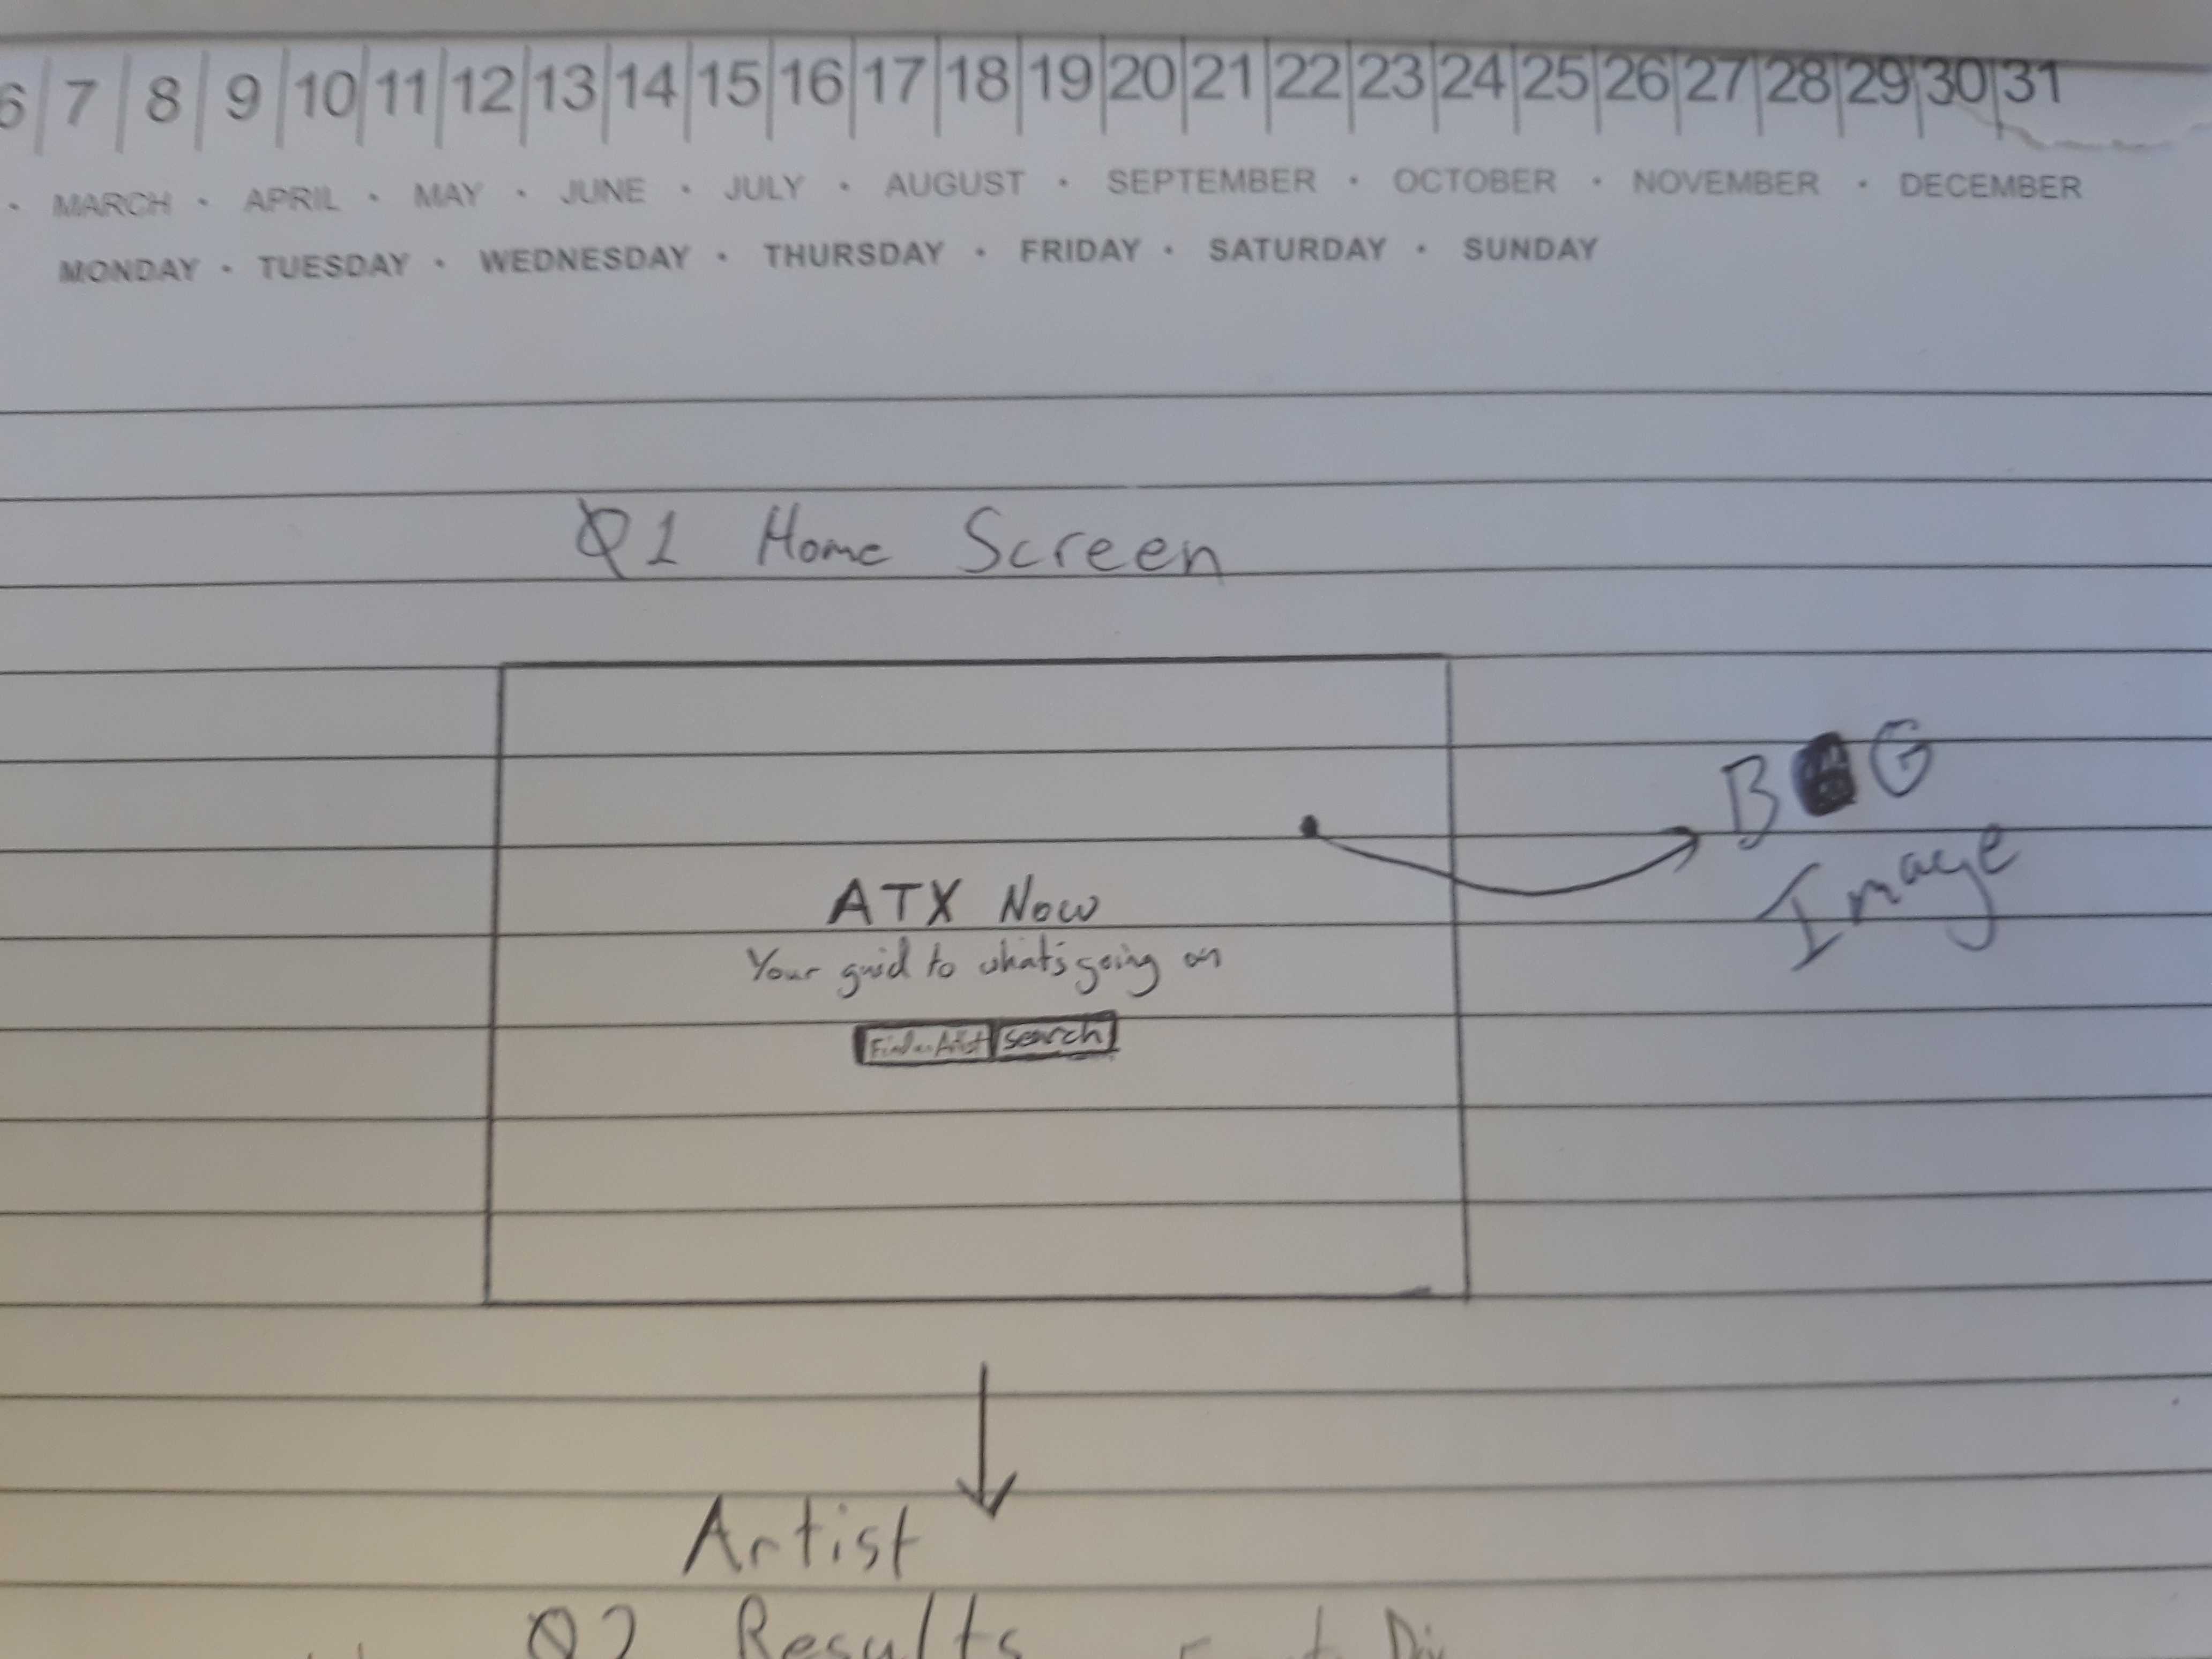 6 7 8 9 10 11 12 13 14 15 16 17 18 19 20 21 22 23 24 25 26 27 28 29 30 31
· MARCH · APRIL · MAY · JUNE · JULY · AUGUST · SEPTEMBER · OCTOBER · NOVEMBER · DECEMBER
MONDAY · TUESDAY · WEDNESDAY · THURSDAY · FRIDAY · SATURDAY · SUNDAY
Q1 Home Screen
B G
Image
ATX Now
Your guid to what's going on
Find an Artist search
Artist
Q2 Results